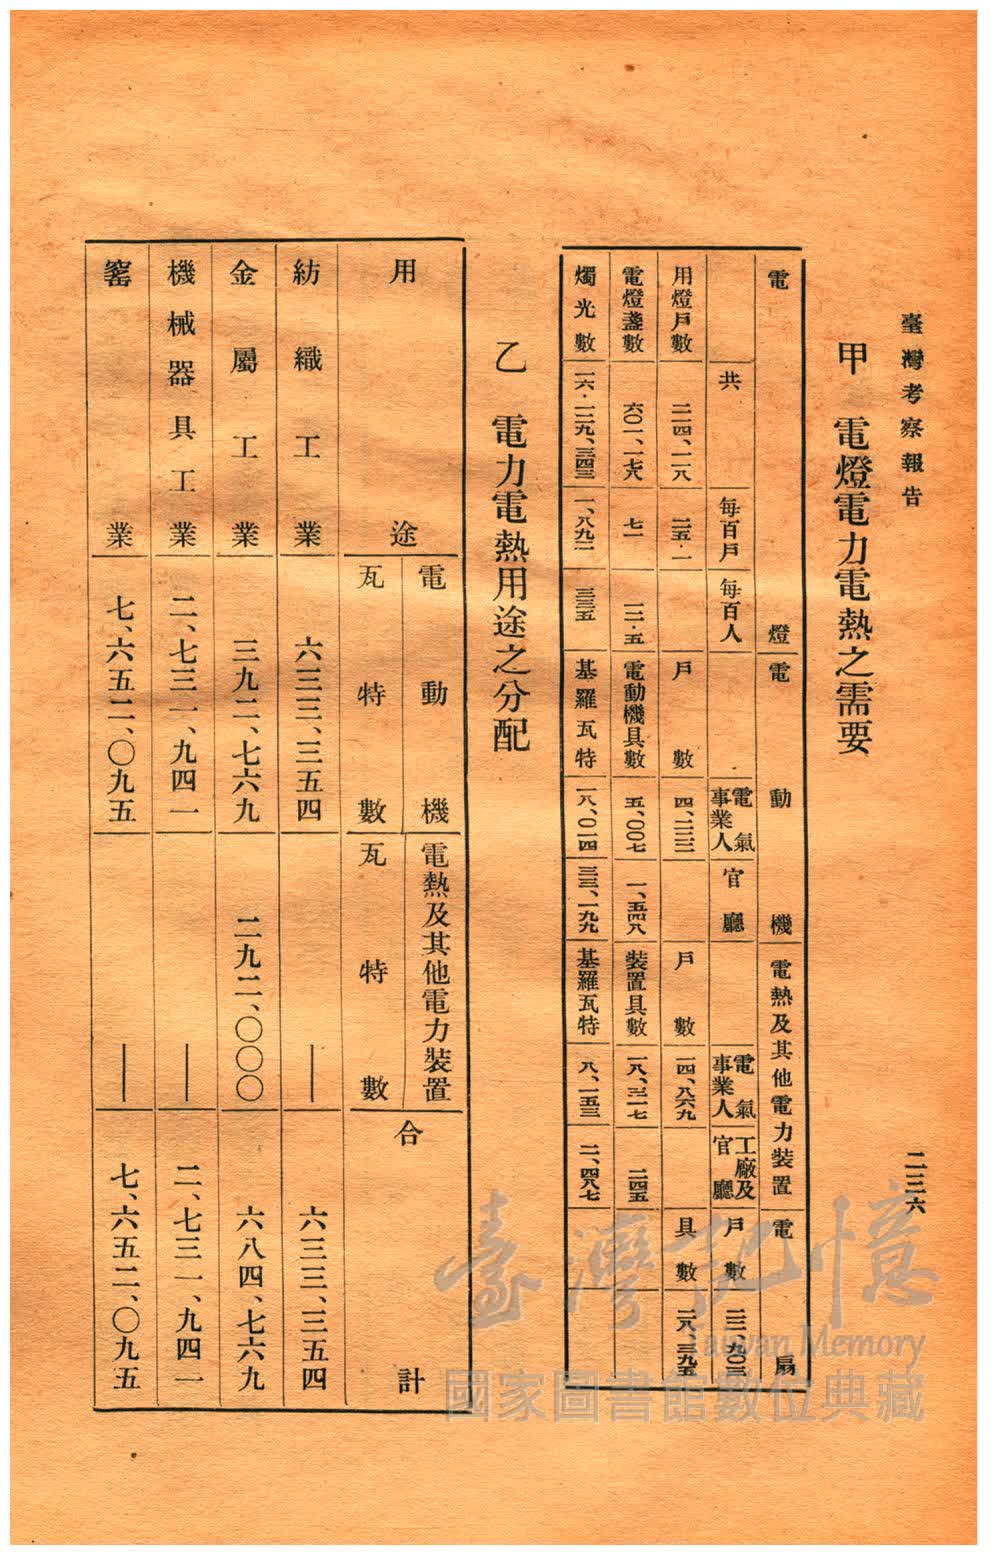 臺灣考察報告
二三六
甲　電燈電力電熱之需要
電燈
電動機
電熱及其他電力裝置
電扇
共
每百戶
每百人
電氣事業人
官廳
電氣事業人
工廠及官廳
戶數
用燈戶數
二二四、二一八
二五·一
戶數
四、二三三
戶數
一四、八六九
具數
二八、三九五
電燈盞數
六〇一、一七六
七一
一二·五
電動機具數
五、〇〇七
一、五四八
裝置具數
一八、三一七
二四五
燭光數
一、八九二
三三五
基羅瓦特
一八、〇一四
三三、一九九
基羅瓦特
八、一五三
二、四八七
乙　電力電熱用途之分配
用途
電動機
瓦特數
電熱及其他電力裝置
瓦特數
合計
紡織工業
六三三、三五四
——
六三三、三五四
金屬工業
三九二、七六九
二九二、〇〇〇
六八四、七六九
機械器具工業
二、七三一、九四一
——
二、七三一、九四一
窰業
七、六五二、〇九五
——
七、六五二、〇九五
臺灣記憶
Taiwan Memory
國家圖書館數位典藏